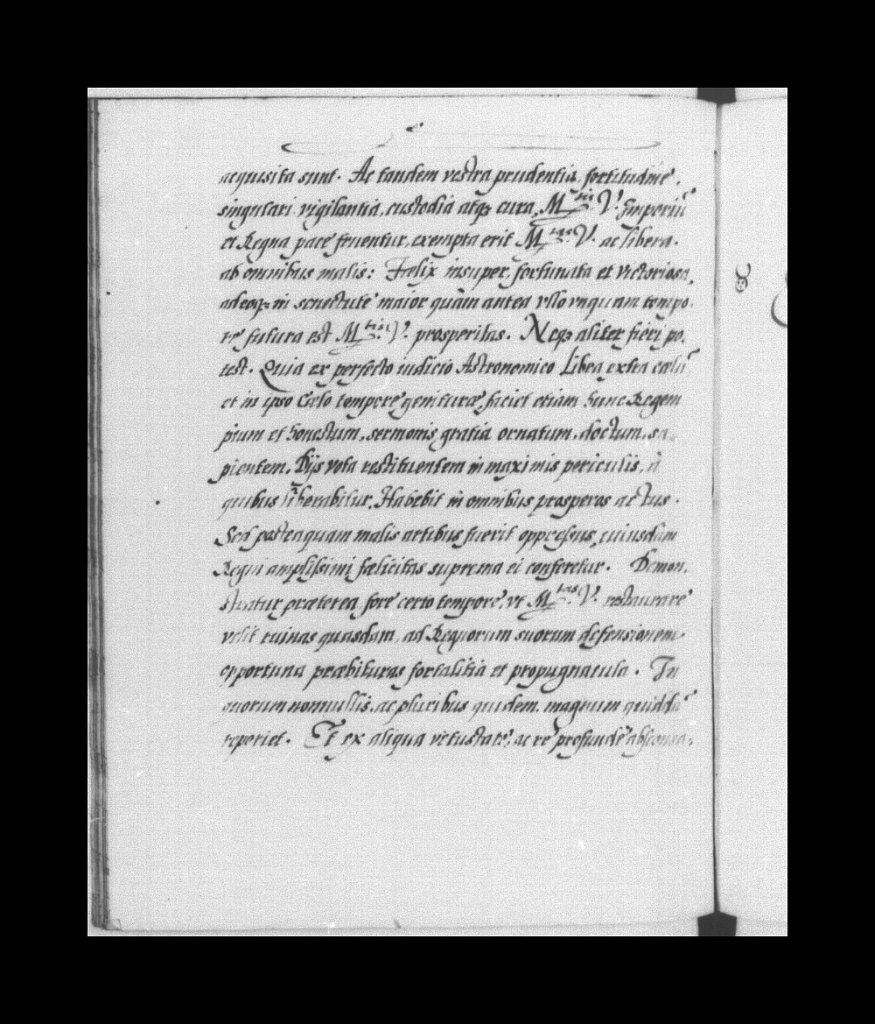 acquisita sunt. Ac tandem vestra prudentia, fortitudine,
singulari vigilantia, custodia atq; cura, M.tis V. Imperiū
et Regna pace fruentur, exempta erit M.tas V. ac libera
ab omnibus malis: Fœlix insuper, fortunata et victoriosa,
adeoq; in senectute maior quàm antea vllo vnquam tempo,
re futura est M.tis V. prosperitas. Neq; aliter fieri po,
test. Quia ex perfecto iudicio Astronomico Libra extra cœlū
et in ipso Cœlo tempore genituræ, faciet etiam hunc Regem
pium et honestum, sermonis gratia ornatum, doctum, sa,
pientem, Dijs vota restituentem in maximis periculis, à
quibus liberabitur, Habebit in omnibus prosperos actus.
Sed posteaquam malis artibus fuerit oppressus, cuiusdam
Regni amplissimi fœlicitas suprema ei conferetur. Demon,
stratur præterea, fore certo tempore, vt M.tas V. restaurare
velit ruinas quasdam, ad Regnorum suorum defensionem
opportuna præbituras fortalitia et propugnacula. In
quorum nonnullis, ac pluribus quidem, magnum quiddā
reperiet. Et ex aliqua vetustate, ac re profundè absconsa,